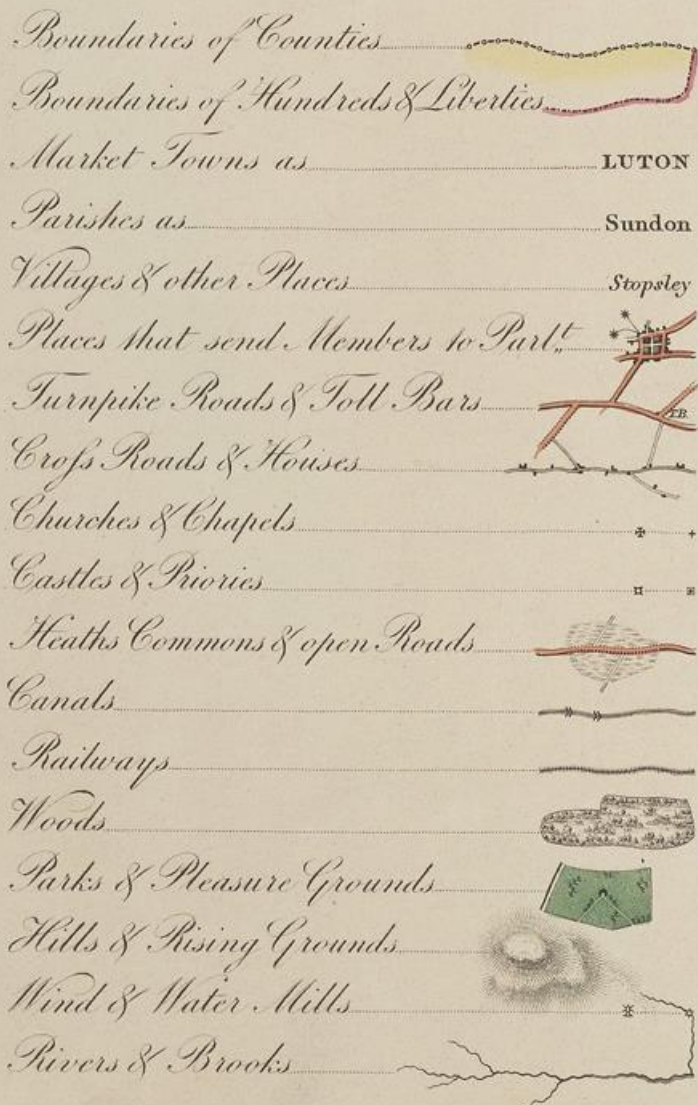 Boundaries of Counties
Boundaries of Hundreds & Liberties
Market Towns as LUTON
Parishes as Sundon
Villages & other Places Stopsley
Places that send Members to Parl.t
Turnpike Roads & Toll Bars T.B.
Croſs Roads & Houses
Churches & Chapels
Castles & Priories
Heaths Commons & open Roads
Canals
Railways
Woods
Parks & Pleasure Grounds
Hills & Rising Grounds
Wind & Water Mills
Rivers & Brooks